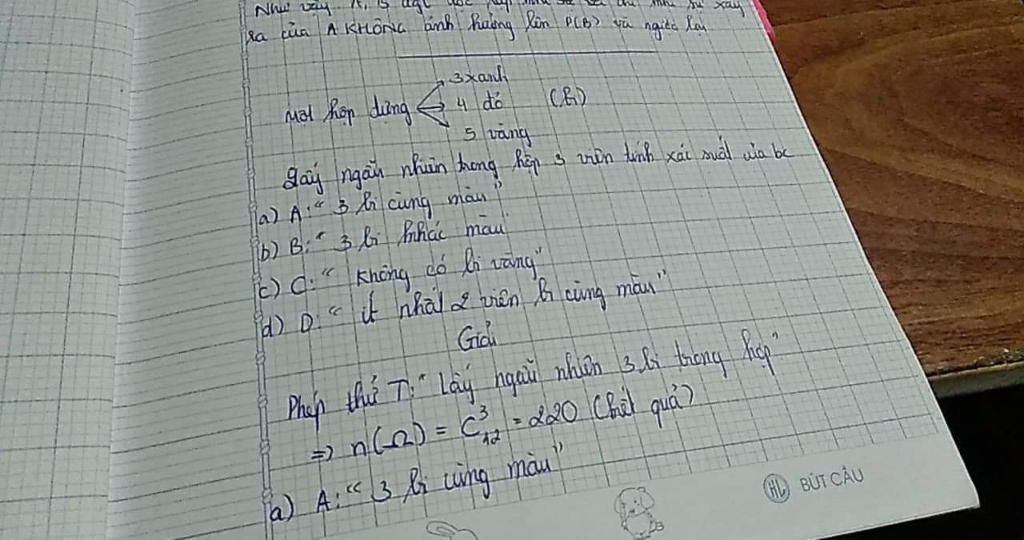 Như vậy A, B
ra của A KHÔNG ảnh hưởng lên P(B) và ngược lại
3 xanh
Một hộp đựng 4 đỏ (bi)
5 vàng
Lấy ngẫu nhiên trong hộp 3 viên tính xác suất của bc
a) A: " 3 bi cùng màu"
b) B: " 3 bi khác màu"
c) C: " Không có bi vàng"
d) D: " ít nhất 2 viên bi cùng màu"
Giải
Phép thử T: "Lấy ngẫu nhiên 3 bi trong hộp"
=> n(Ω) = C³₁₂ = 220 (kết quả)
a) A: " 3 bi cùng màu"
HL BÚT CÂU